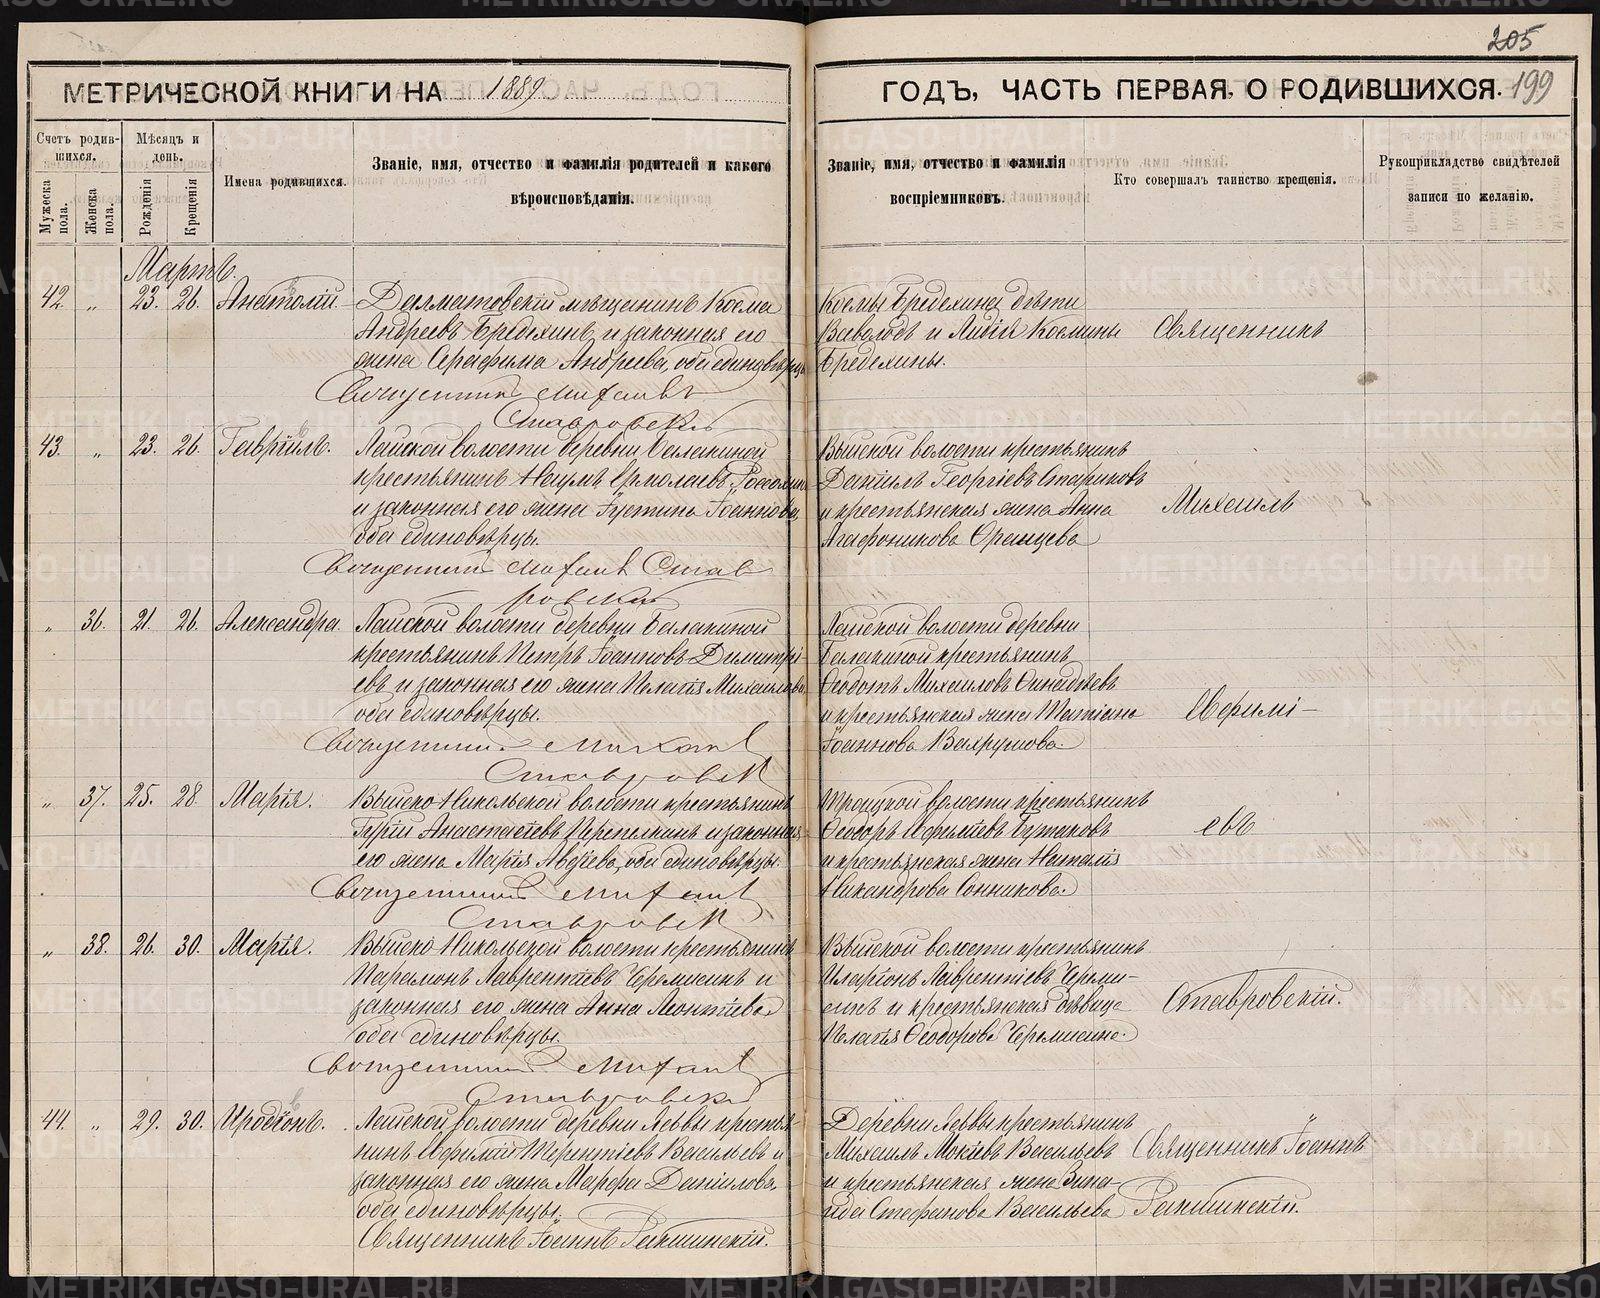 205
МЕТРИЧЕСКОЙ КНИГИ НА 1889
ГОДЪ, ЧАСТЬ ПЕРВАЯ, О РОДИВШИХСЯ. 199
Счетъ родившихся.
Мужеска пола.
Женска пола.
Мѣсяцъ и день.
Рожденія
Крещенія
Имена родившихся.
Званіе, имя, отчество и фамилія родителей и какого
вѣроисповѣданія.
Званіе, имя, отчество и фамилія
воспріемниковъ.
Кто совершалъ таинство крещенія.
Рукоприкладство свидѣтелей
записи по желанію.
Мартъ.
42. „ 23. 26. Анатолій. Далматовскій мѣщанинъ Косма
Андреевъ Бредихинъ и законная его
жена Серафима Андреева, оба единовѣрцы
Священникъ Михаилъ
Ставровскій
Космы Бределина дѣти
Всеволодъ и Лидія Космины
Бределины.
Священникъ
43. „ 23. 26. Гавріилъ. Лайской волости деревни Балакиной
крестьянинъ Наумъ Ермолаевъ
и законная его жена Іустина Іоаннова,
оба единовѣрцы.
Священникъ Михаилъ Став
ровскій
Выйской волости крестьянинъ
Даніилъ Георгіевъ Стариковъ
и крестьянская жена Анна
Агафоникова Оранцева
Михаилъ
„ 36. 21. 26. Александра. Лайской волости деревни Балакиной
крестьянинъ Петръ Іоанновъ Димитрі-
евъ и законная его жена Пелагія Михаилова
оба единовѣрцы.
Священникъ Михаилъ
Ставровскій
Лайской волости деревни
Балакиной крестьянинъ
Ѳеодотъ Михаиловъ
и крестьянская жена Татіана
Іоаннова Вахрушова.
Евфимі-
„ 37. 25. 28. Марія. Выйско-Никольской волости крестьянинъ
Гурій Анастасіевъ Перепелкинъ и законная
его жена Марія Авдіева, оба единовѣрцы.
Священникъ Михаилъ
Ставровскій
Троицкой волости крестьянинъ
Ѳеодоръ Ефиміевъ
и крестьянская жена Наталія
Никандрова Сонникова.
евъ
„ 38. 26. 30. Марія. Выйско-Никольской волости крестьянинъ
Парамонъ Лаврентіевъ Черемисинъ и
законная его жена Анна Леонтіева
оба единовѣрцы.
Священникъ Михаилъ
Ставровскій
Выйской волости крестьянинъ
Иларіонъ Лаврентіевъ Череми-
синъ и крестьянская дѣвица
Пелагія Ѳеодорова Черемисина.
Ставровскій.
44. „ 29. 30. Иродіонъ. Лайской волости деревни Леввы крестья-
нинъ Ефимій Терентіевъ Васильевъ и
законная его жена Марфа Даніилова,
оба единовѣрцы.
Священникъ Іоаннъ
Деревни Леввы крестьянинъ
Михаилъ Мокіевъ Васильевъ
и крестьянская жена Зина-
ида Стефанова Васильева
Священникъ Іоаннъ
METRIKI.GASO-URAL.RU